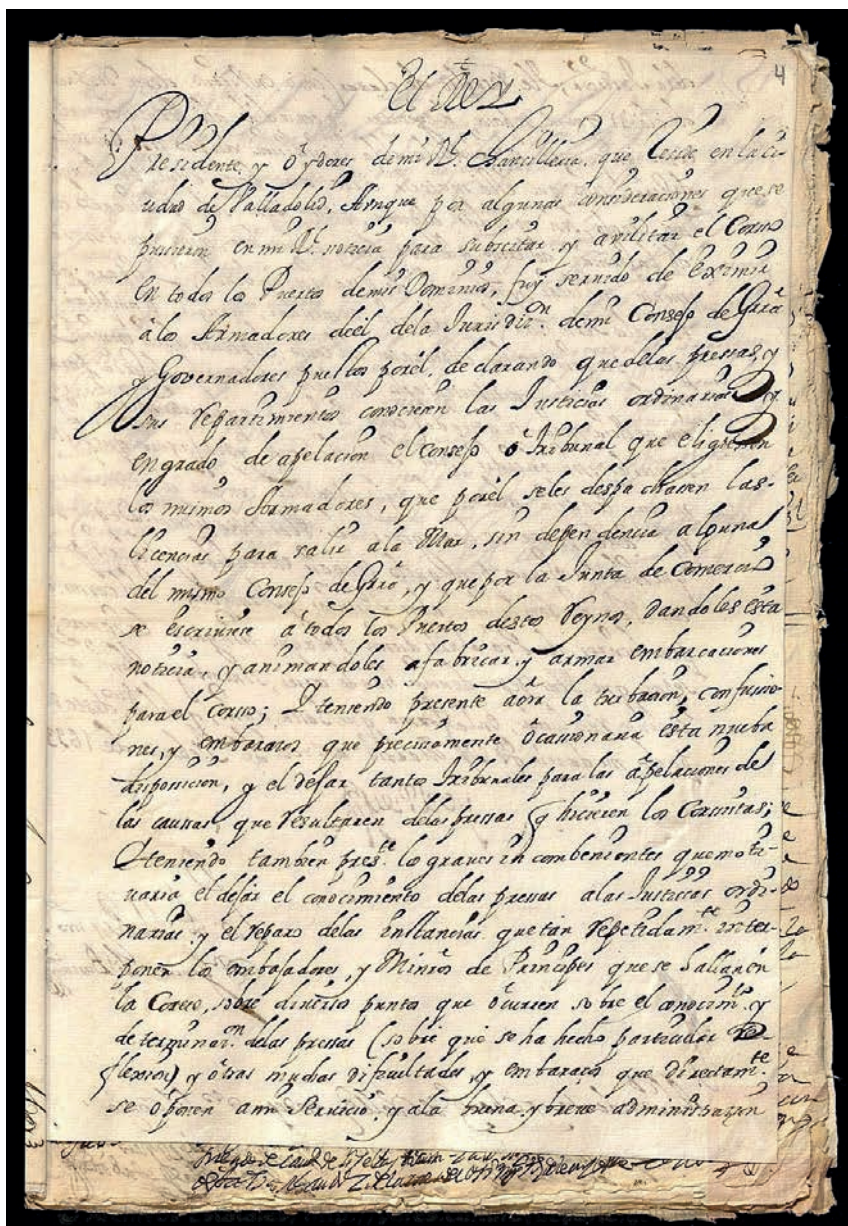 4
El Rey
Presidente y oydores de mi Rl. Chancilleria que reside en la ciu-
udad de Valladolid, Aunque por algunas consideraciones que se
pusieron en mi Rl. noticia para subscitar y avilitar el Corso
en todos los Puertos de mis Dominios, fuy servido de eximir
à los Armadores de èl de la Jurisdizn. de mi Consejo de Gura
y Governadores puestos por èl, declarando que de las pressas, y
sus repartimientos conociesen las Justicias ordinarias y
en grado de apelacion el Consejo ò Tribunal que eligiesen
los mismos Armadores, que por èl seles despachasen las
licencias para salir ala Mar, sin dependencia alguna
del mismo Consejo de Gura, y que por la Junta de Comercio
se escriviese à todos los Puertos destos Reynos, dandoles esta
noticia, y animandoles a fabricar y armar embarcaciones
para el Corso; Y teniendo presente aora la turbacion, confusio-
nes, y embarazos que precisamente ocasionaria esta nueba
disposicion, y el dejar tantos Tribunales para las apelaciones de
las causas que resultaren delas pressas q hicieren los Corsistas;
Y teniendo tambien preste. los graves incombenientes que moti-
uaria el dejar el conocimiento delas pressas alas Justicias ordi-
narias y el reparo delas instancias que tan repetidamte. inter-
ponen los embajadores, y Minros de Principes que se hallan en
la Corte, sobre diversos puntos que ocurren sobre el conocimto. y
determinacon. delas pressas (sobre que se ha hecho particular Re-
flexion) y otras muchas dificultades, y embarazos que directamte.
se oponen a mi servicio y ala buena y breve administrazion